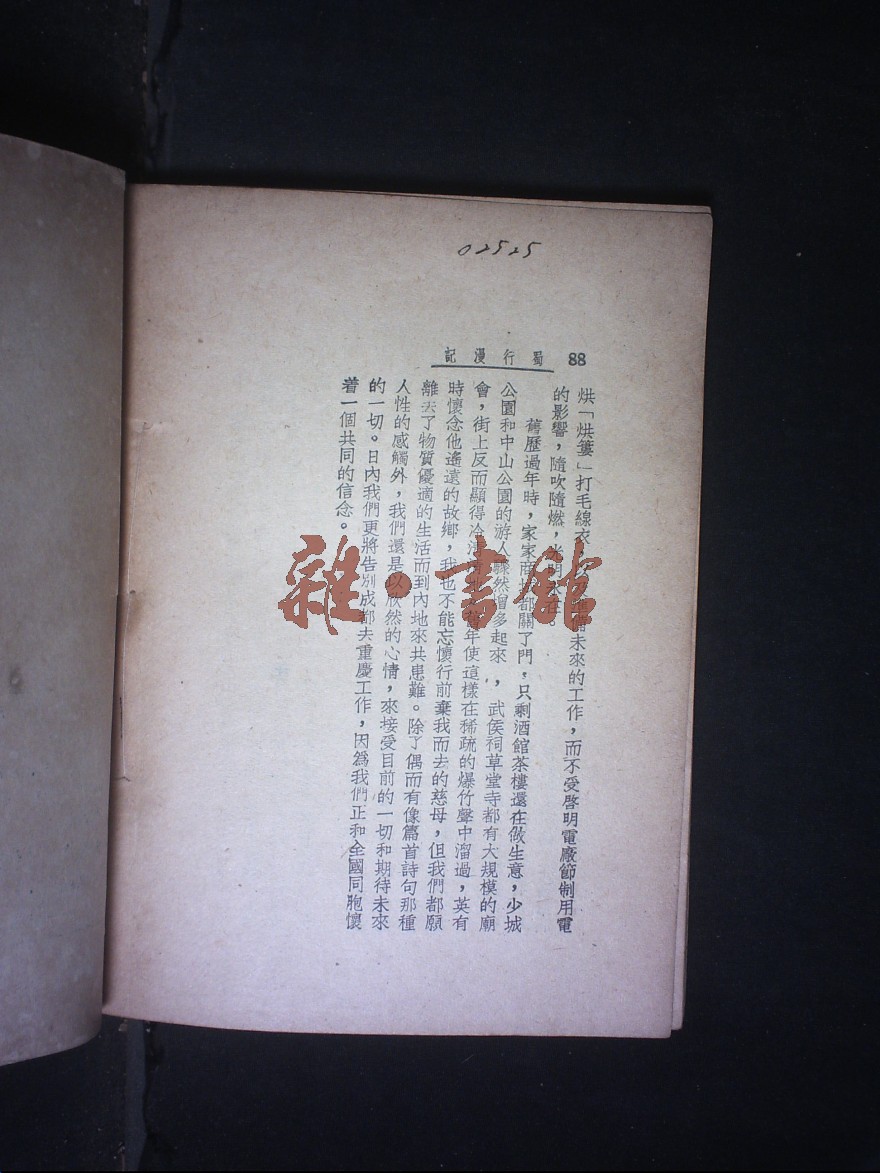 02525
88
蜀行漫記
烘「烘簍」打毛線衣 備未來的工作，而不受啓明電廠節制用電
的影響，隨吹隨燃，光明 在。
舊歷過年時，家家商 都關了門，只剩酒館茶樓還在做生意，少城
公園和中山公園的游人驟然增多起來，武侯祠草堂寺都有大規模的廟
會，街上反而顯得冷清 年使這樣在稀疏的爆竹聲中溜過，英有
時懷念他遙遠的故鄉，我也不能忘懷行前棄我而去的慈母，但我們都願
離去了物質優適的生活而到內地來共患難。除了偶而有像篇首詩句那種
人性的感觸外，我們還是以欣然的心情，來接受目前的一切和期待未來
的一切。日內我們更將告別成都去重慶工作，因爲我們正和全國同胞懷
着一個共同的信念。
雜·書館